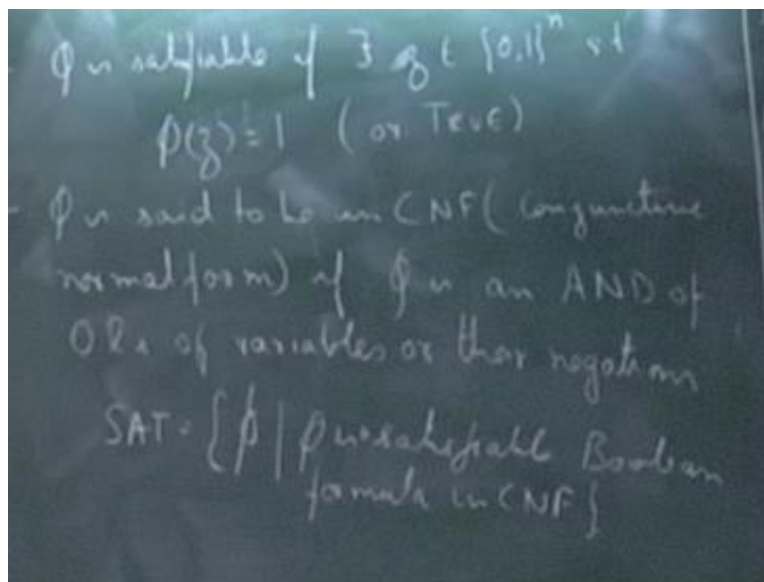 - φ is satisfiable if ∃ z ∈ {0,1}ⁿ st
φ(z)=1 (or TRUE)
- φ is said to be in CNF (conjunctive
normal form) if φ is an AND of
ORs of variables or their negations
SAT = {φ | φ is a satisfiable Boolean
formula in CNF}